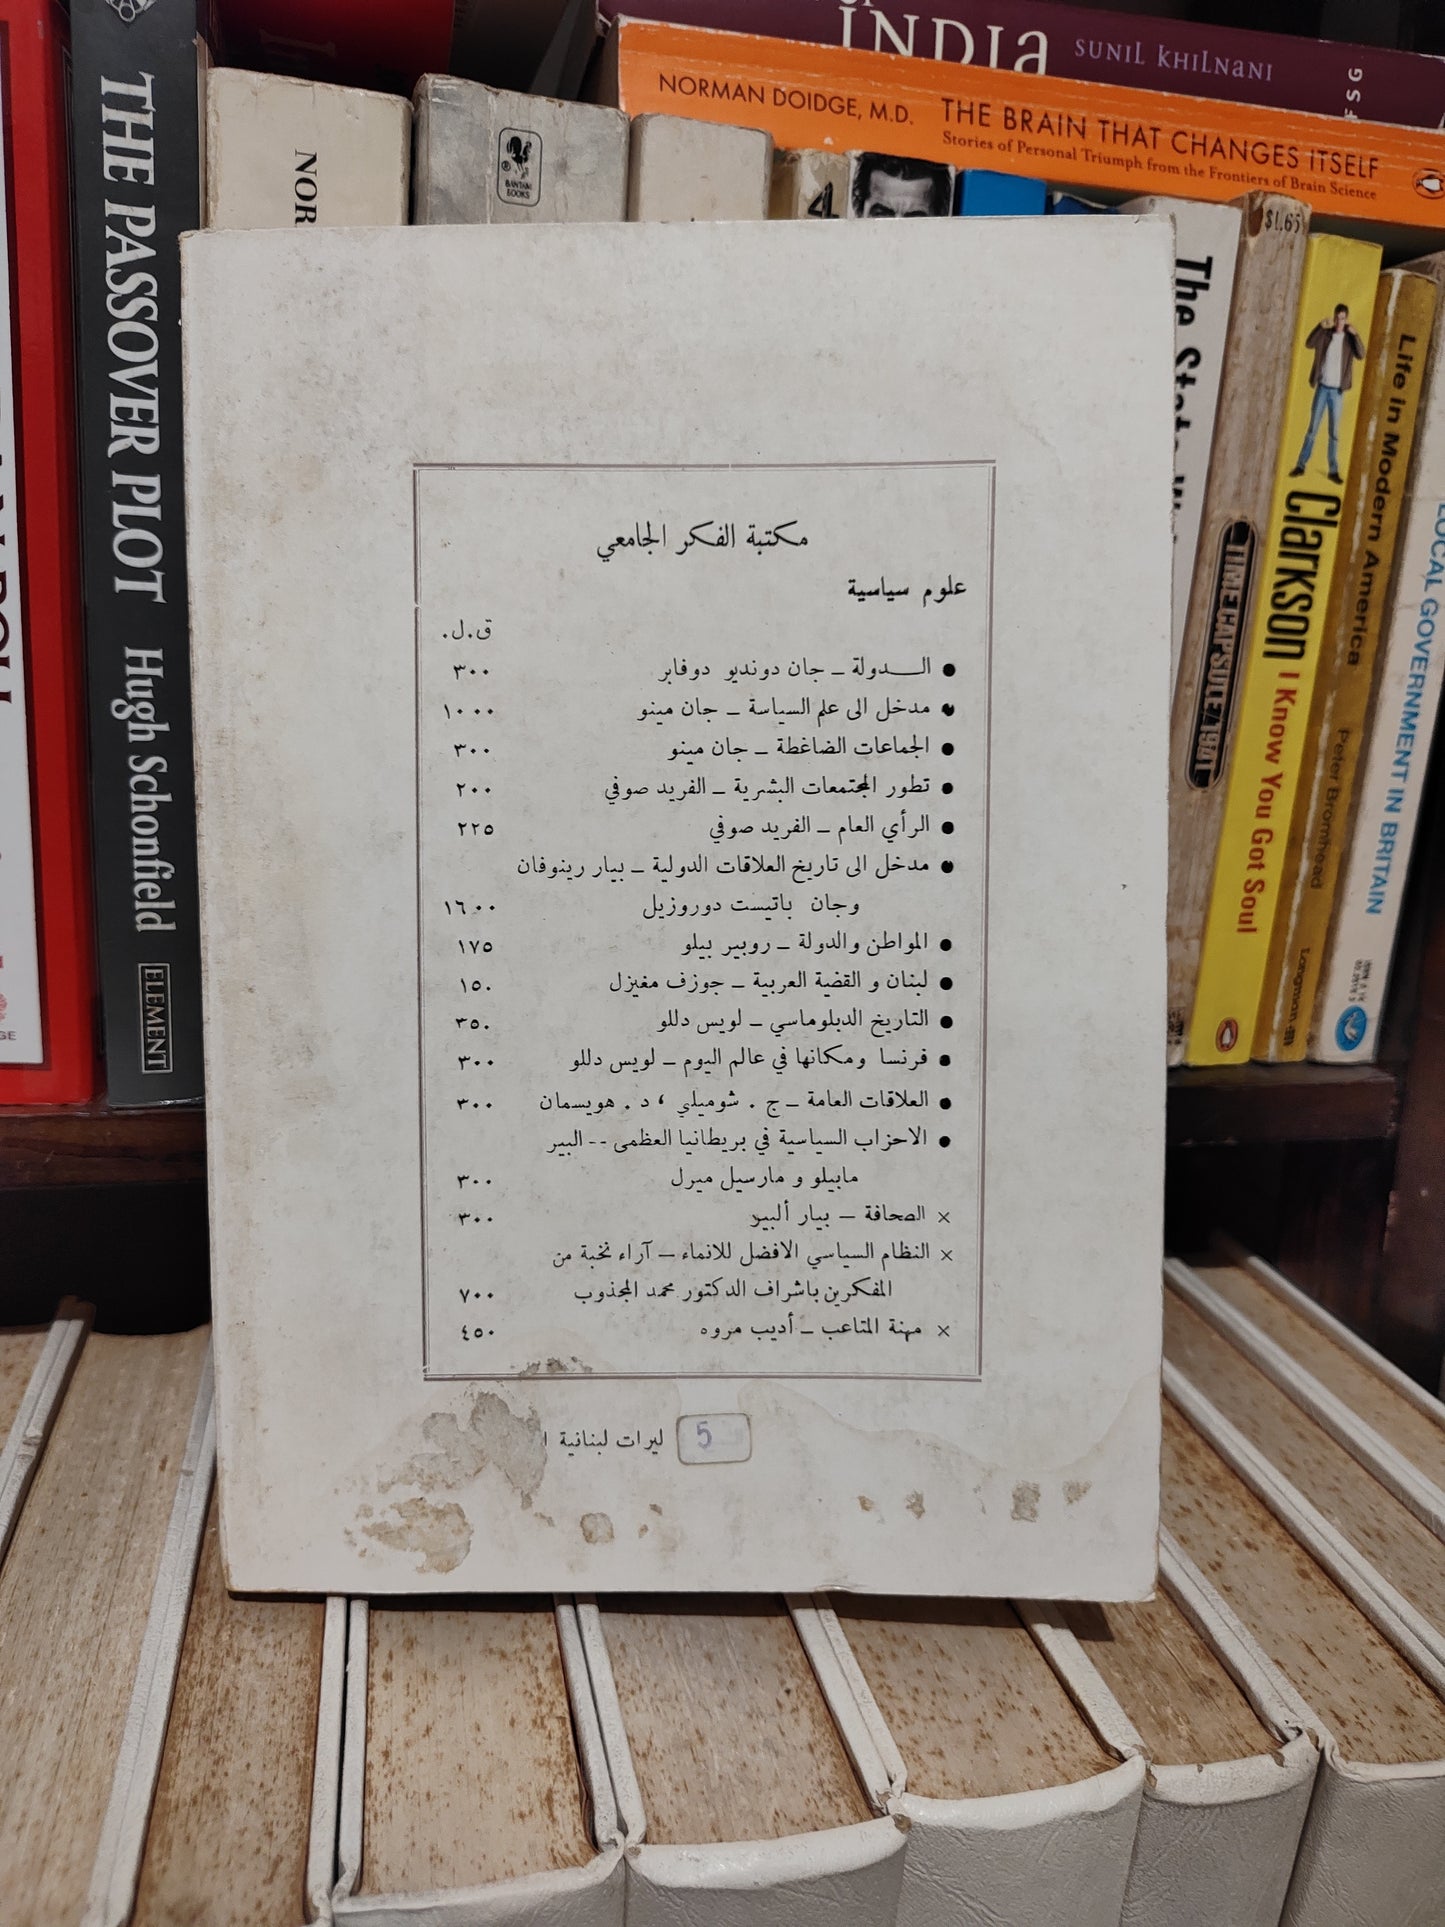 INDIa
SUNIL KHILNANI
FSG
NORMAN DOIDGE, M.D. THE BRAIN THAT CHANGES ITSELF
Stories of Personal Triumph from the Frontiers of Brain Science
THE PASSOVER PLOT Hugh Schonfield
ELEMENT
NOR
BANTAM
BOOKS
4
The
$1.65
TIME CAPSULE/1941
Clarkson I Know You Got Soul
Life in Modern America
Peter Bromhead
Longman
LOCAL GOVERNMENT IN BRITAIN
مكتبة الفكر الجامعي
علوم سياسية
ق.ل.
● الــدولة ــ جان دونديو دوفابر ٣٠٠
● مدخل الى علم السياسة ــ جان مينو ١٠٠٠
● الجماعات الضاغطة ــ جان مينو ٣٠٠
● تطور المجتمعات البشرية ــ الفريد صوفي ٢٠٠
● الرأي العام ــ الفريد صوفي ٢٢٥
● مدخل الى تاريخ العلاقات الدولية ــ بيار رينوفان
وجان باتيست دوروزيل ١٦٠٠
● المواطن والدولة ــ روبير بيلو ١٧٥
● لبنان و القضية العربية ــ جوزف مغيزل ١٥٠
● التاريخ الدبلوماسي ــ لويس دللو ٣٥٠
● فرنسا ومكانها في عالم اليوم ــ لويس دللو ٣٠٠
● العلاقات العامة ــ ج . شوميلي ، د . هويسمان ٣٠٠
● الاحزاب السياسية في بريطانيا العظمى -- البير
مابيلو و مارسيل ميرل ٣٠٠
× الصحافة ــ بيار ألبير ٣٠٠
× النظام السياسي الافضل للانماء ــ آراء نخبة من
المفكرين باشراف الدكتور محمد المجذوب ٧٠٠
× مهنة المتاعب ــ أديب مروه ٤٥٠
5 ليرات لبنانية